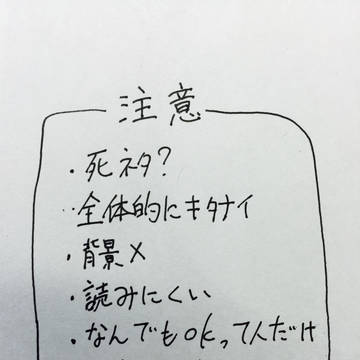 注意
・死ネタ?
・全体的にキタナイ
・背景×
・読みにくい
・なんでもokって人だけ